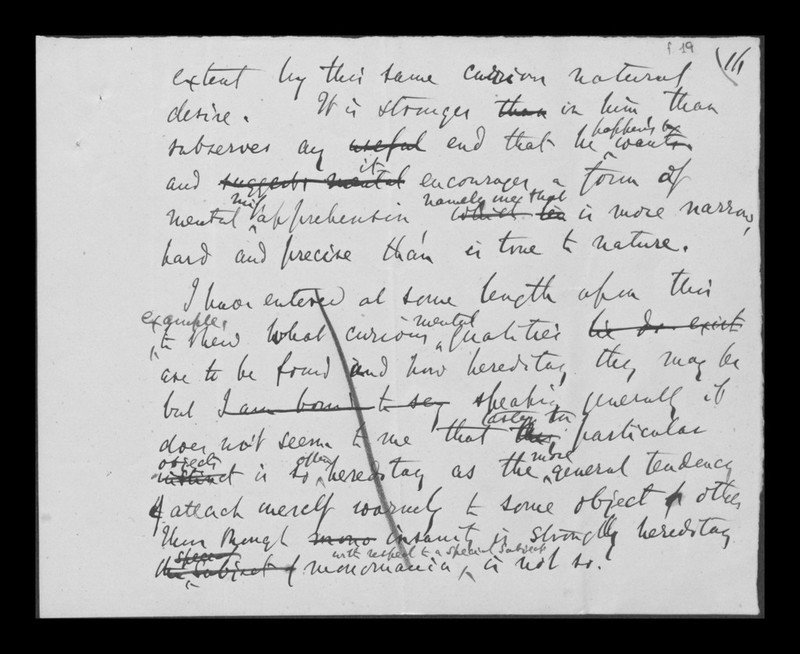 f. 19 14
extent by this same curious natural
desire. It is stronger than in him than
subserves any useful end that he happens to wants
and suggests mental it encourages a form of
mental misapprehension namely one that which is more narrow,
hard and precise than is true to nature.
I have entered at some length upon this
example, to shew what curious mental qualities do exist
are to be found and how hereditary they may be
but I am bound to say speaking generally it
does not seem to me that the particular
objects instinct is so often hereditary as the more general tendency
attach oneself warmly to some object or other
Thus though mono insanity is strongly hereditary
the special subject of monomania with respect to a special subject is not so.